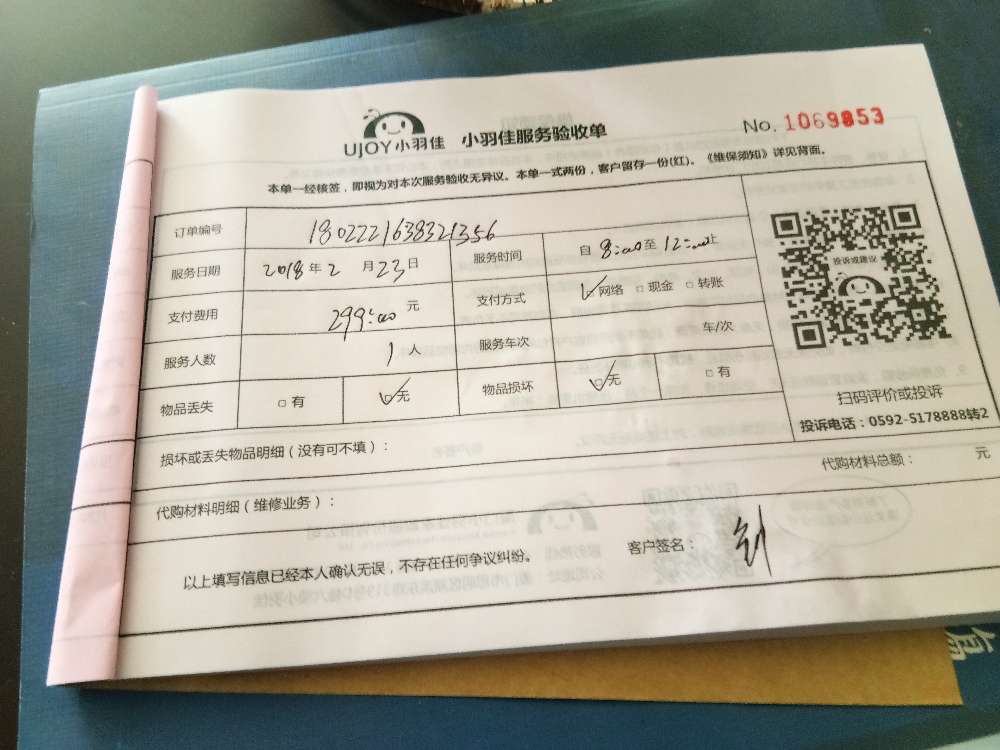 UJOY小羽佳 小羽佳服务验收单 No. 1069853
本单一经核签，即视为对本次服务验收无异议。本单一式两份，客户留存一份(红)。《维保须知》详见背面。
订单编号 1802221638321356
服务日期 2018年2月23日 服务时间 自8:00至12:00止
支付费用 299:00元 支付方式 ☑网络 □现金 □转账
服务人数 1人 服务车次 车/次
物品丢失 □有 ☑无 物品损坏 ☑无 □有
投诉或建议
扫码评价或投诉
投诉电话：0592-5178888转2
损坏或丢失物品明细（没有可不填）：
代购材料明细（维修业务）： 代购材料总额： 元
以上填写信息已经本人确认无误，不存在任何争议纠纷。 客户签名：